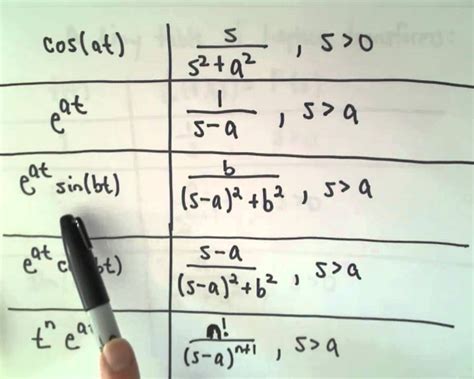 cos(at) s/(s²+a²) , s>0
e^at 1/(s-a) , s>a
e^at sin(bt) b/((s-a)²+b²) , s>a
e^at c bt) (s-a)/((s-a)²+b²) , s>a
t^n e^a n!/(s-a)^n+1 , s>a